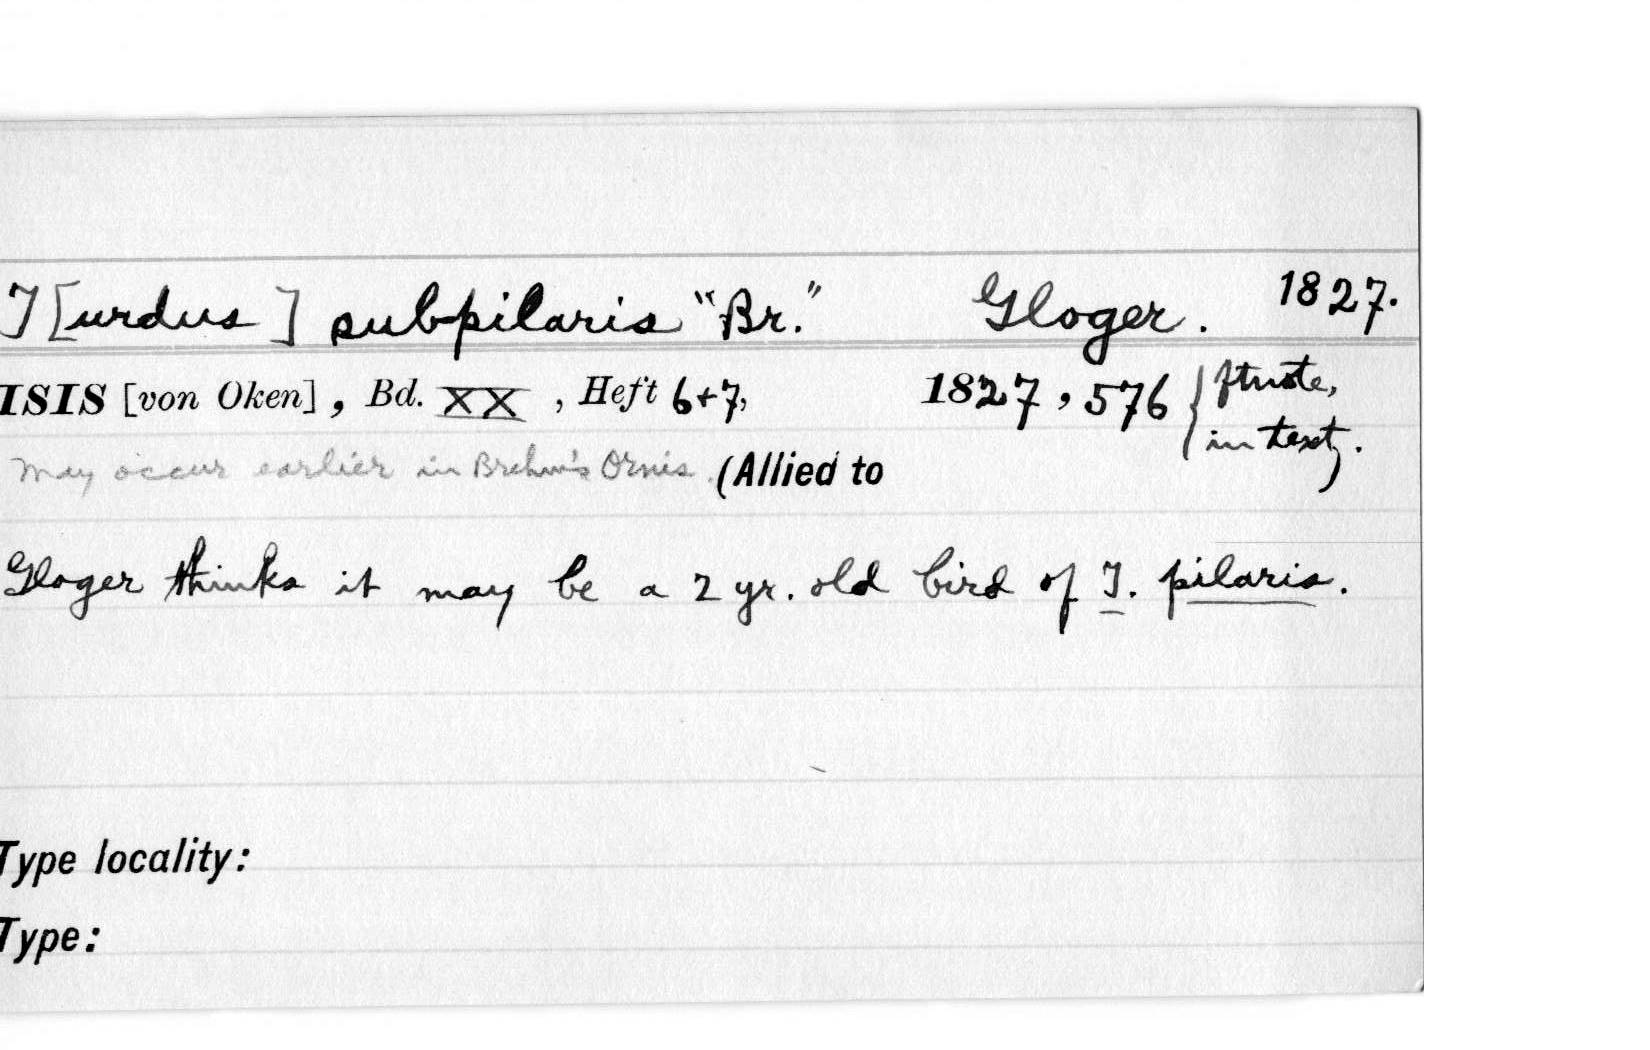 T[urdus] subpilaris "Br." Gloger. 1827.
ISIS [von Oken], Bd. XX, Heft 6+7, 1827, 576 { ftnote,
in text.
May occur earlier in Brehm's Ornis. (Allied to )
Gloger thinks it may be a 2 yr. old bird of T. pilaris.
Type locality:
Type: